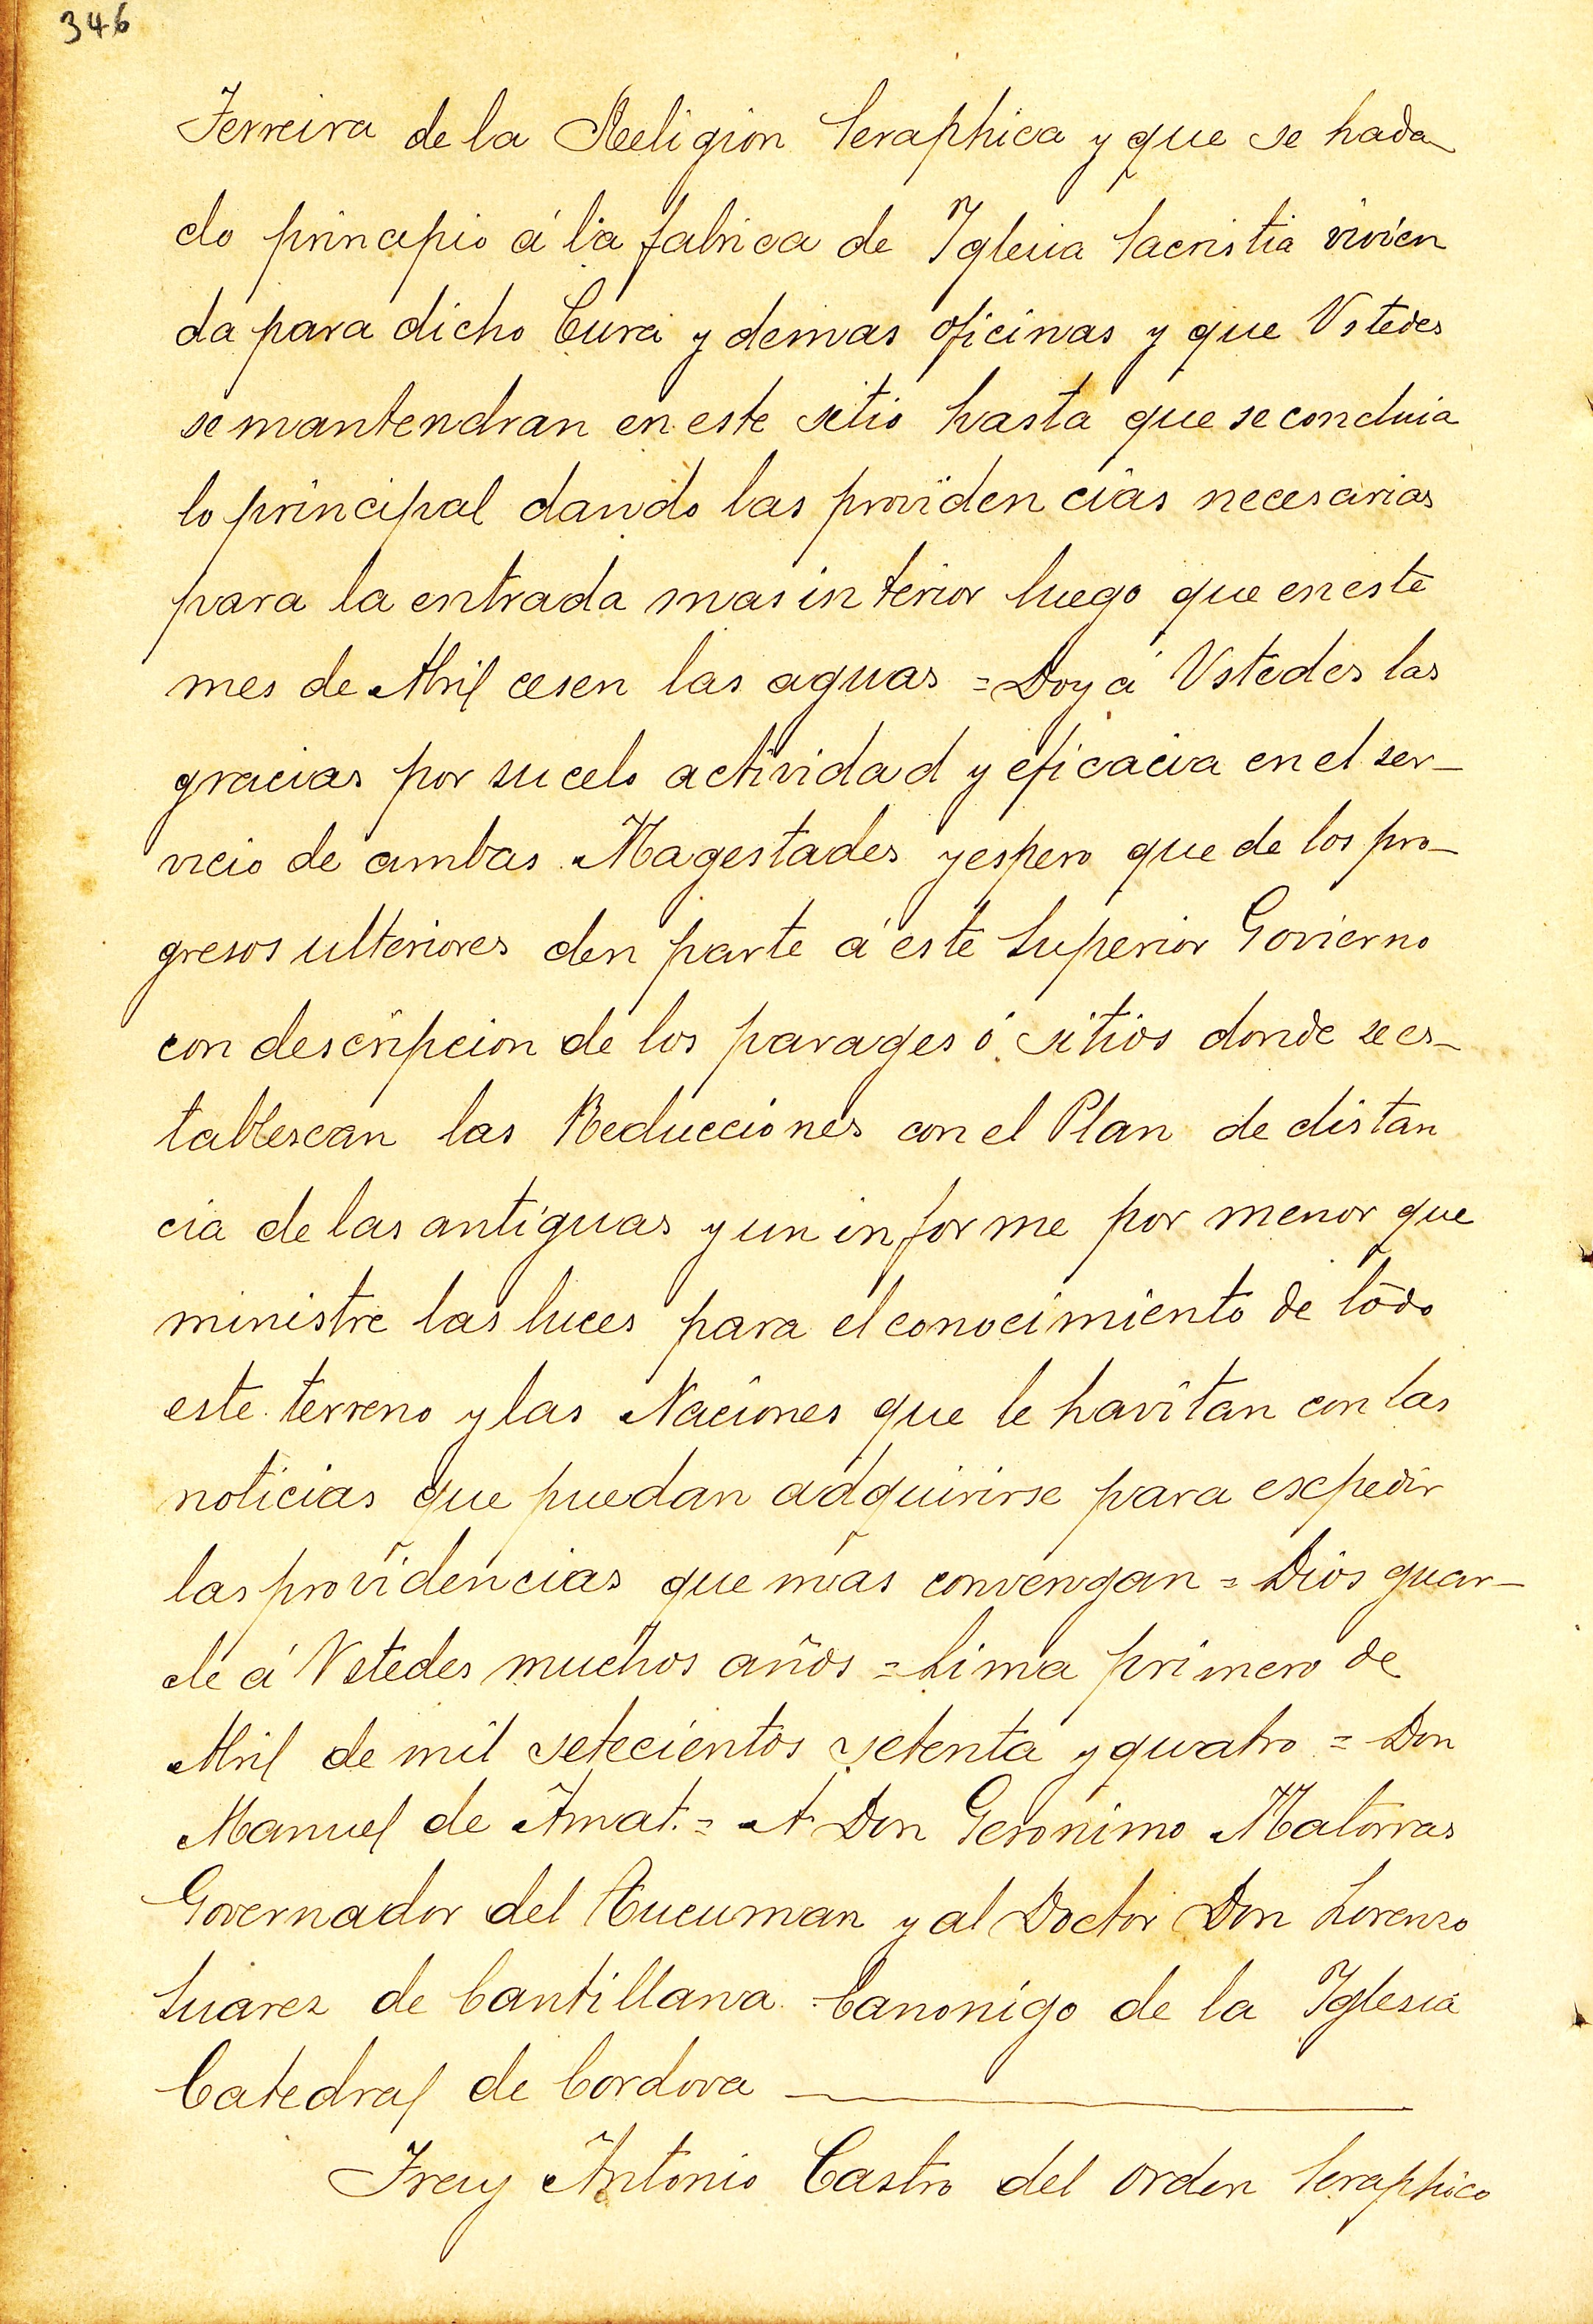 346
Ferreira de la Religion Seraphica y que se hada
do principio á la fabrica de Yglesia Sacristia vivien
da para dicho Cura y demas oficinas y que Vstedes
se mantendran en este sitio hasta que se concluia
lo principal dando las providencias necesarias
para la entrada mas interior luego que en este
mes de Abril cesen las aguas = Doy á Vstedes las
gracias por su celo actividad y eficacia en el ser-
vicio de ambas Magestades y espero que de los pro-
gresos ulteriores den parte á este Superior Govierno
con descripcion de los parages ó sitios donde se es-
tablescan las Reducciones con el Plan de distan
cia de las antiguas y un informe por menor que
ministre las luces para el conocimiento de todo
este terreno y las Naciones que le havitan con las
noticias que puedan adquirirse para expedir
las providencias que mas convengan = Dios guar-
de á Vstedes muchos años = Lima primero de
Abril de mil setecientos setenta y quatro = Don
Manuel de Amat. = A Don Geronimo Matorras
Governador del Tucuman y al Doctor Don Lorenzo
Suarez de Cantillana Canonigo de la Yglesia
Catedral de Cordova
Fray Antonio Castro del orden Seraphico